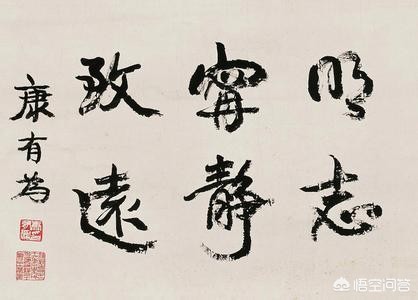 明志
寧靜
致遠
康有為
悟空问答